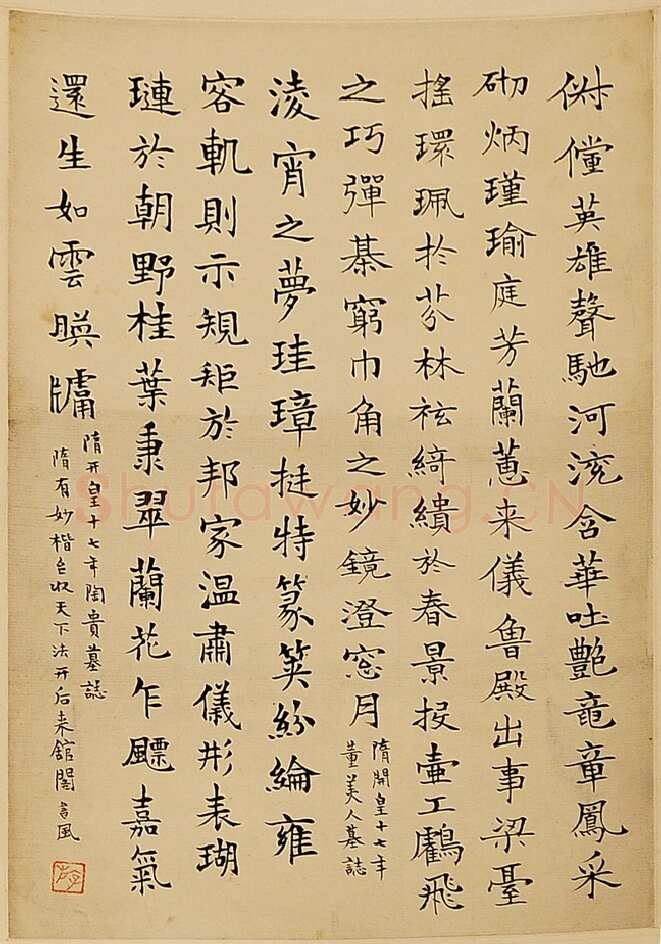 倜儻英雄聲馳河洛含華吐艷竜章鳳采
砌炳瑾瑜庭芳蘭蕙来儀魯殿出事梁臺
搖環珮於芬林袨綺繢於春景投壺工鸖飛
之巧彈棊窮巾角之妙鏡澄窓月
隋開皇十七年
董美人墓誌
淩宵之夢珪璋挺特篆篆紛綸雍
容軌則示規矩於邦家温肅儀形表瑚
璉於朝野桂葉秉翠蘭花乍飃嘉氣
還生如雲暎牗
隋开皇十七年陶貴墓誌
隋有妙楷台收天下法开后来舘閣書風
Shufawang.CN